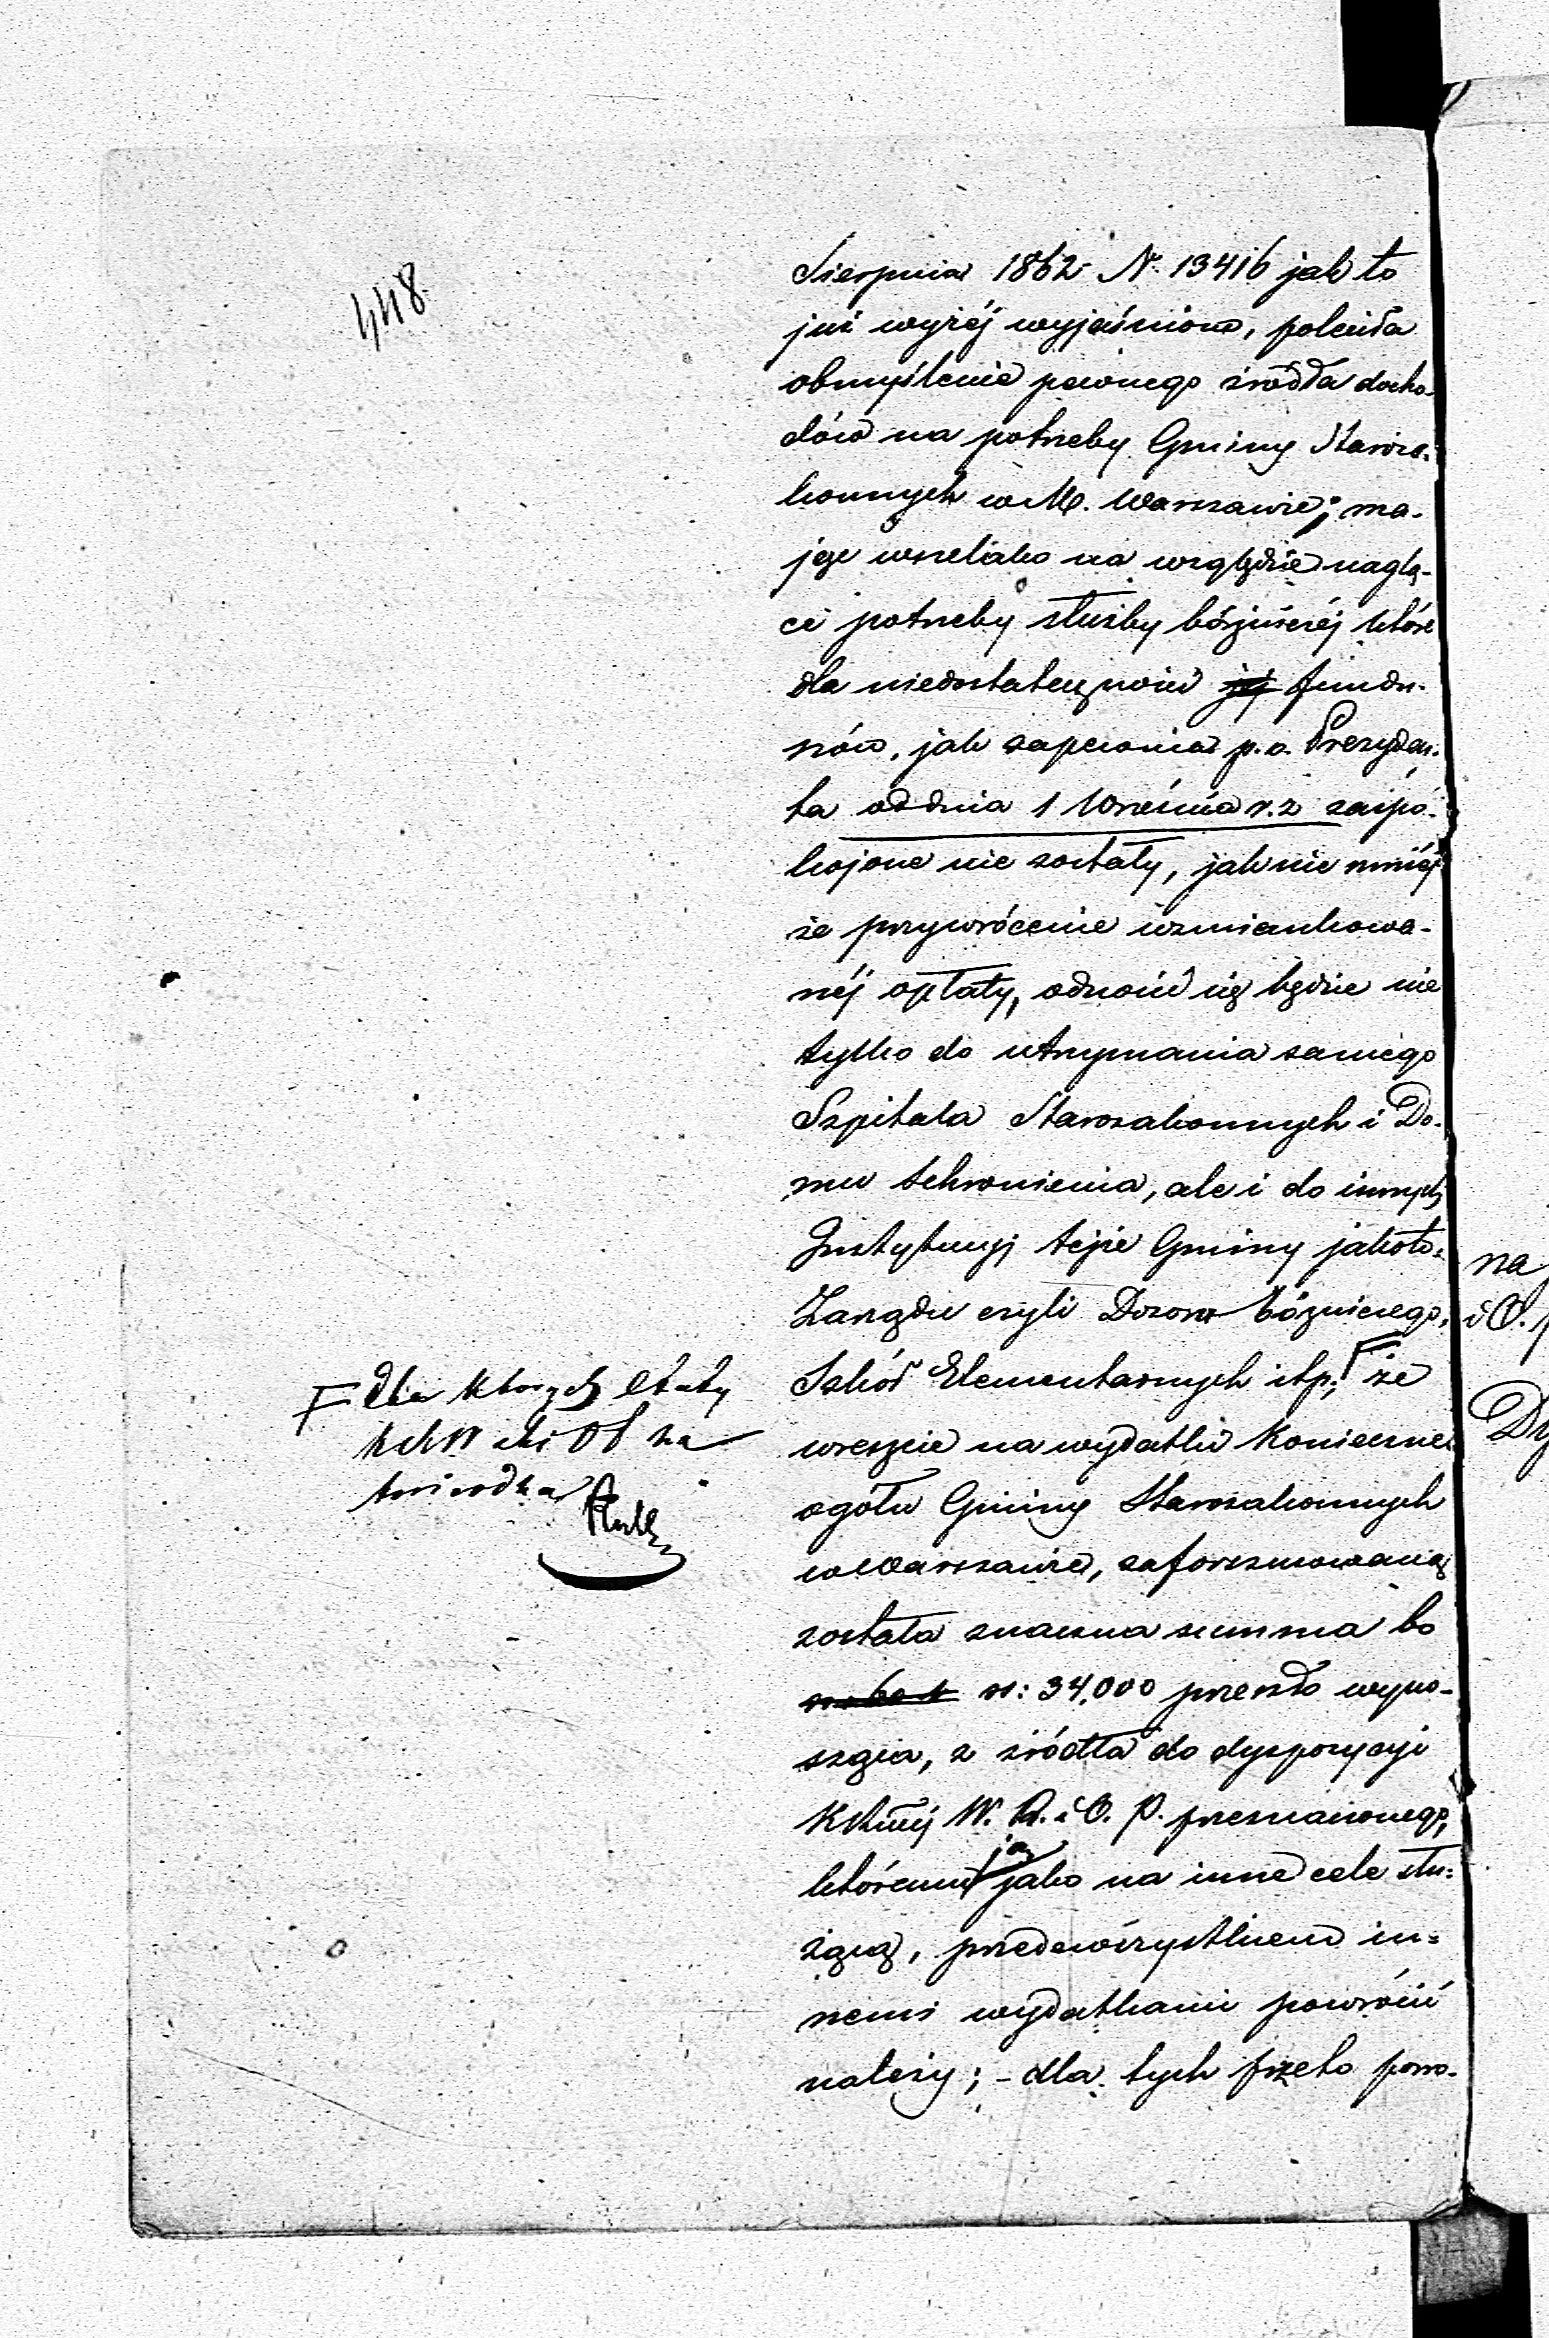 448.
Sierpnia 1862 N. 13416 jak to
już wyżéj wyjaśniono, poleciła
obmyślenie pewnego źródła docho-
dów na potrzeby Gminy Staroza-
konnych w M. Warszawie; ma-
jąc wszelako na względzie naglą-
ce potrzeby służby bóżniczéj które
dla niedostateczności jéj fundu-
szów, jak zapewnia p.o. Prezyden-
ta od dnia 1 Września r.z zaspo-
kojone nie zostały, jak nie mniéj
że przywrócenie wzmiankowa-
néj opłaty, odnosić się będzie nie
tylko do utrzymania samego
Szpitala Starozakonnych i Do-
mu schronienia, ale i do innych
Instytucyj tejże Gminy jakoto:
Zarządu czyli Dozoru bóżniczego,
Szkół Elementarnych itp; że
wreszcie na wydatki konieczne
ogółu Gminy Starozakonnych
w Warszawie, zaforszusowaną
została znaczna summa bo
rs: 34,000 przeszło wyno-
sząca, z źródła do dyspozycyi
KRząj W. R. i O. P. przeznaczonego,
któremu ją jako na inne cele słu-
żącą, przedewszystkiem in-
nemi wydatkami powrócić
należy; - dla tych przeto powo-
F dla których etaty
zatwierdza
na
i O. p
Dy